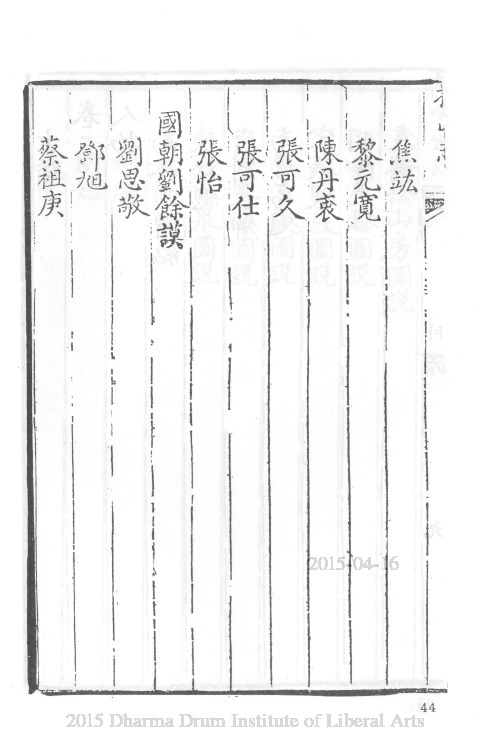 焦竑
黎元寬
陳丹衷
張可久
張可仕
張怡
國朝劉餘謨
劉思敬
鄧旭
蔡祖庚
2015-04-16
44
2015 Dharma Drum Institute of Liberal Arts